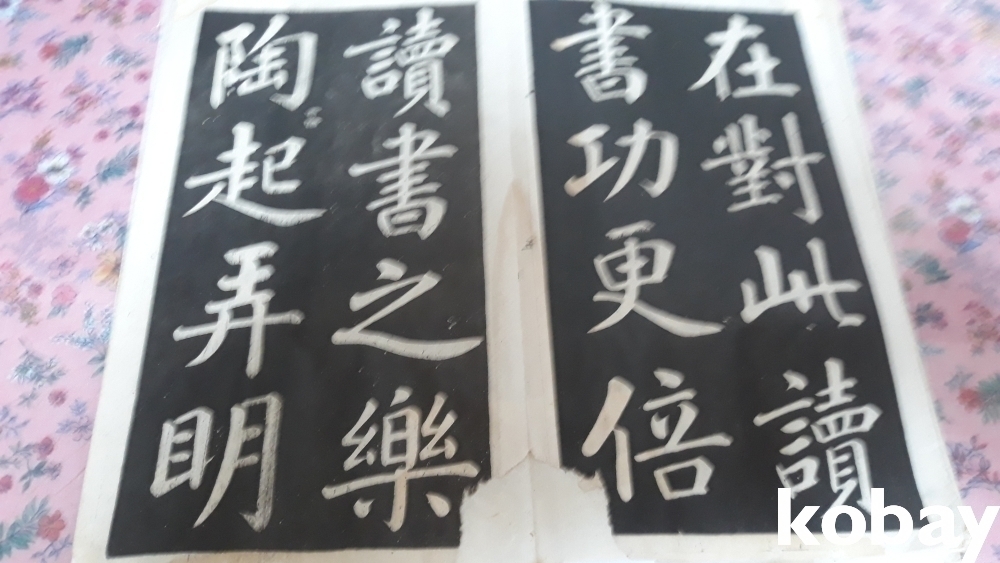 在對此讀
書功更倍
讀書之樂
陶起弄明
kobay